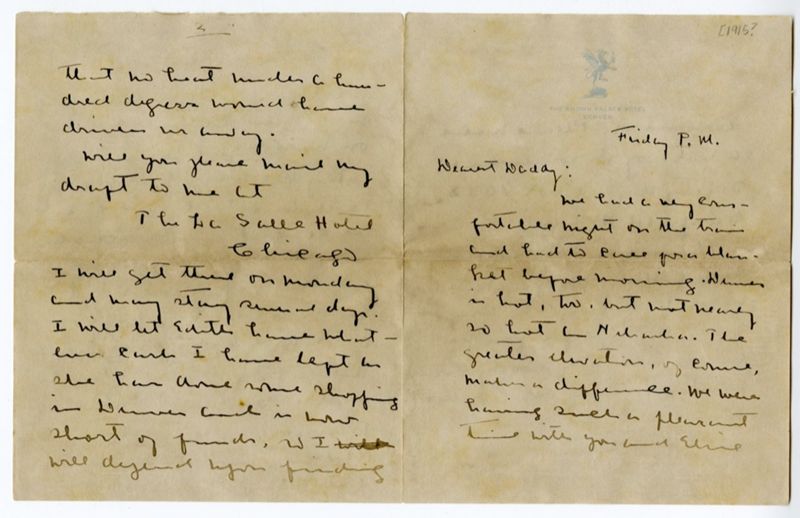 [1915?
THE BROWN PALACE HOTEL
DENVER
Friday P.M.
Dearest Daddy:
We had a very com-
fortable night on the train
and had to call for a blan-
ket before morning. Denver
is hot, too, but not nearly
so hot as Nebraska. The
greater elevation, of course,
makes a difference. We were
having such a pleasant
time with you and
that no heat under a hun-
dred degrees would have
driven us away.
Will you please mail my
draft to me at
The La Salle Hotel
Chicago
I will get there on Monday
and may stay several days.
I will let Edith have what-
ever cash I have left as
she has done some shopping
in Denver and is now
short of funds, so I will
will depend upon finding